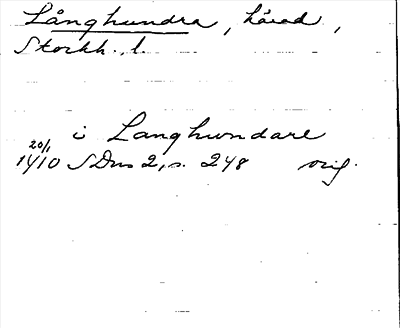 Långhundra, härad,
Stockh. l.
i Langhundare
20/1
1410 SDns 2, s. 248 orig.